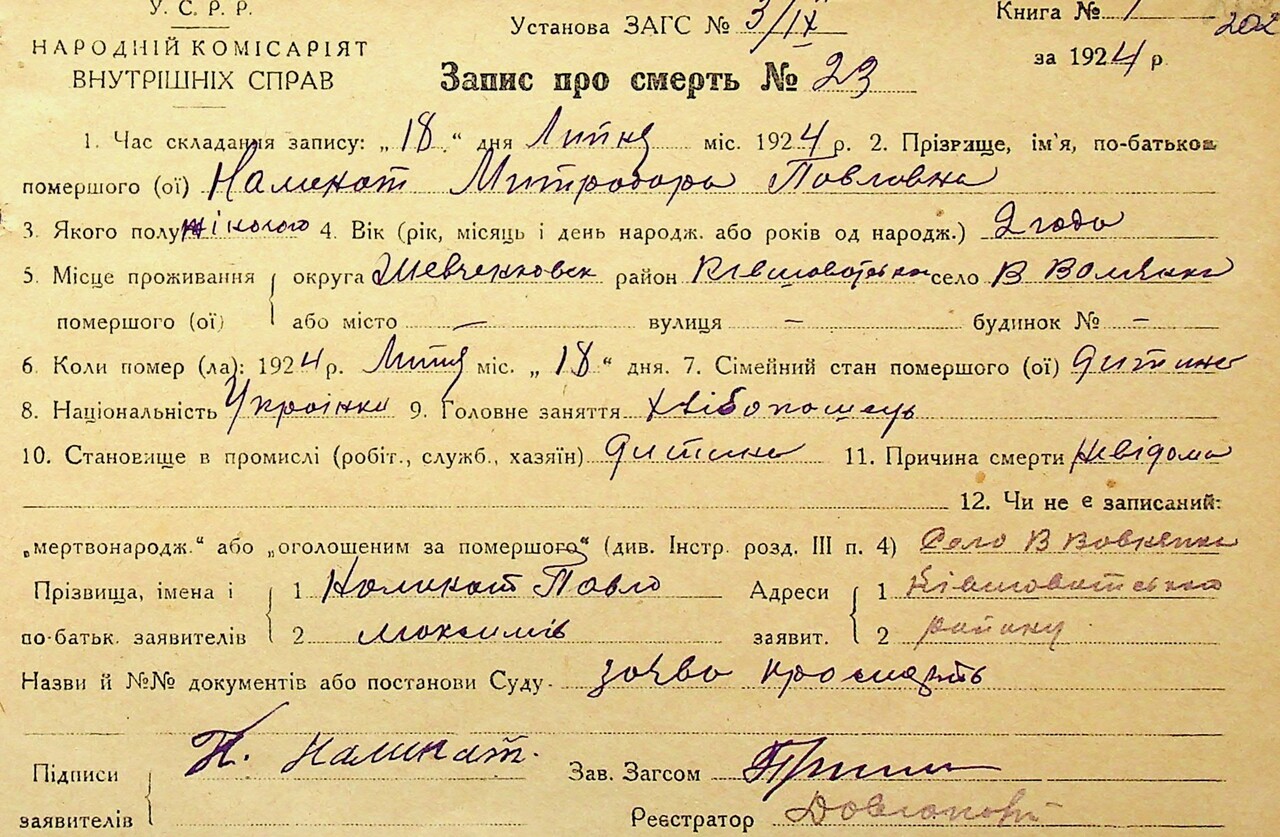 У. С. Р. Р.
НАРОДНІЙ КОМІСАРІЯТ
ВНУТРІШНІХ СПРАВ
Установа ЗАГС № 3/IX
Книга № 1 202
за 1924 р.
Запис про смерть № 23
1. Час складання запису: „18“ дня Липня міс. 1924 р. 2. Прізвище, ім'я, по-батькові
помершого (ої) Митродора Павловна
3. Якого полу жіночого 4. Вік (рік, місяць і день народж. або років од народж.) 2 года
5. Місце проживання округа Шевченковск район село В
помершого (ої) або місто — вулиця — будинок № —
6. Коли помер (ла): 1924 р. Липня міс. „18“ дня. 7. Сімейний стан помершого (ої) дитина
8. Національність Українка 9. Головне заняття
10. Становище в промислі (робіт., служб., хазяїн) дитина 11. Причина смерти невідома
12. Чи не є записаний:
„мертвонародж.“ або „оголошеним за помершого“ (див. Інстр. розд. III п. 4) Село В
Прізвища, імена і 1 Павло Адреси 1
по-батьк. заявителів 2 Максимів заявит. 2 району
Назви й №№ документів або постанови Суду заява про смерть
Підписи П. Зав. Загсом
заявителів Реєстратор